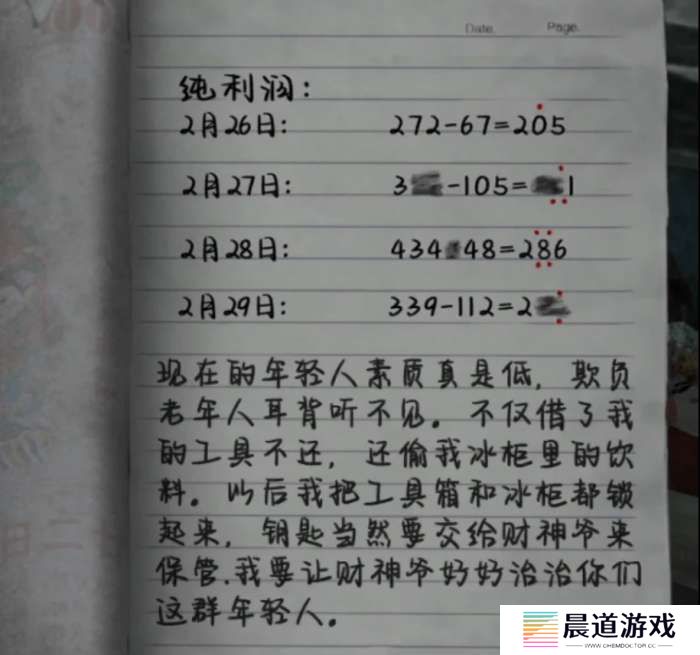 Date. Page.
纯利润：
2月26日： 272-67=205
2月27日： 3 -105= 1
2月28日： 434 48=286
2月29日： 339-112=2
现在的年轻人素质真是低，欺负
老年人耳背听不见。不仅借了我
的工具不还，还偷我冰柜里的饮
料。以后我把工具箱和冰柜都锁
起来，钥匙当然要交给财神爷来
保管.我要让财神爷好好治治你们
这群年轻人。
晨道游戏
WWW.CHEMDOCTOR.CC